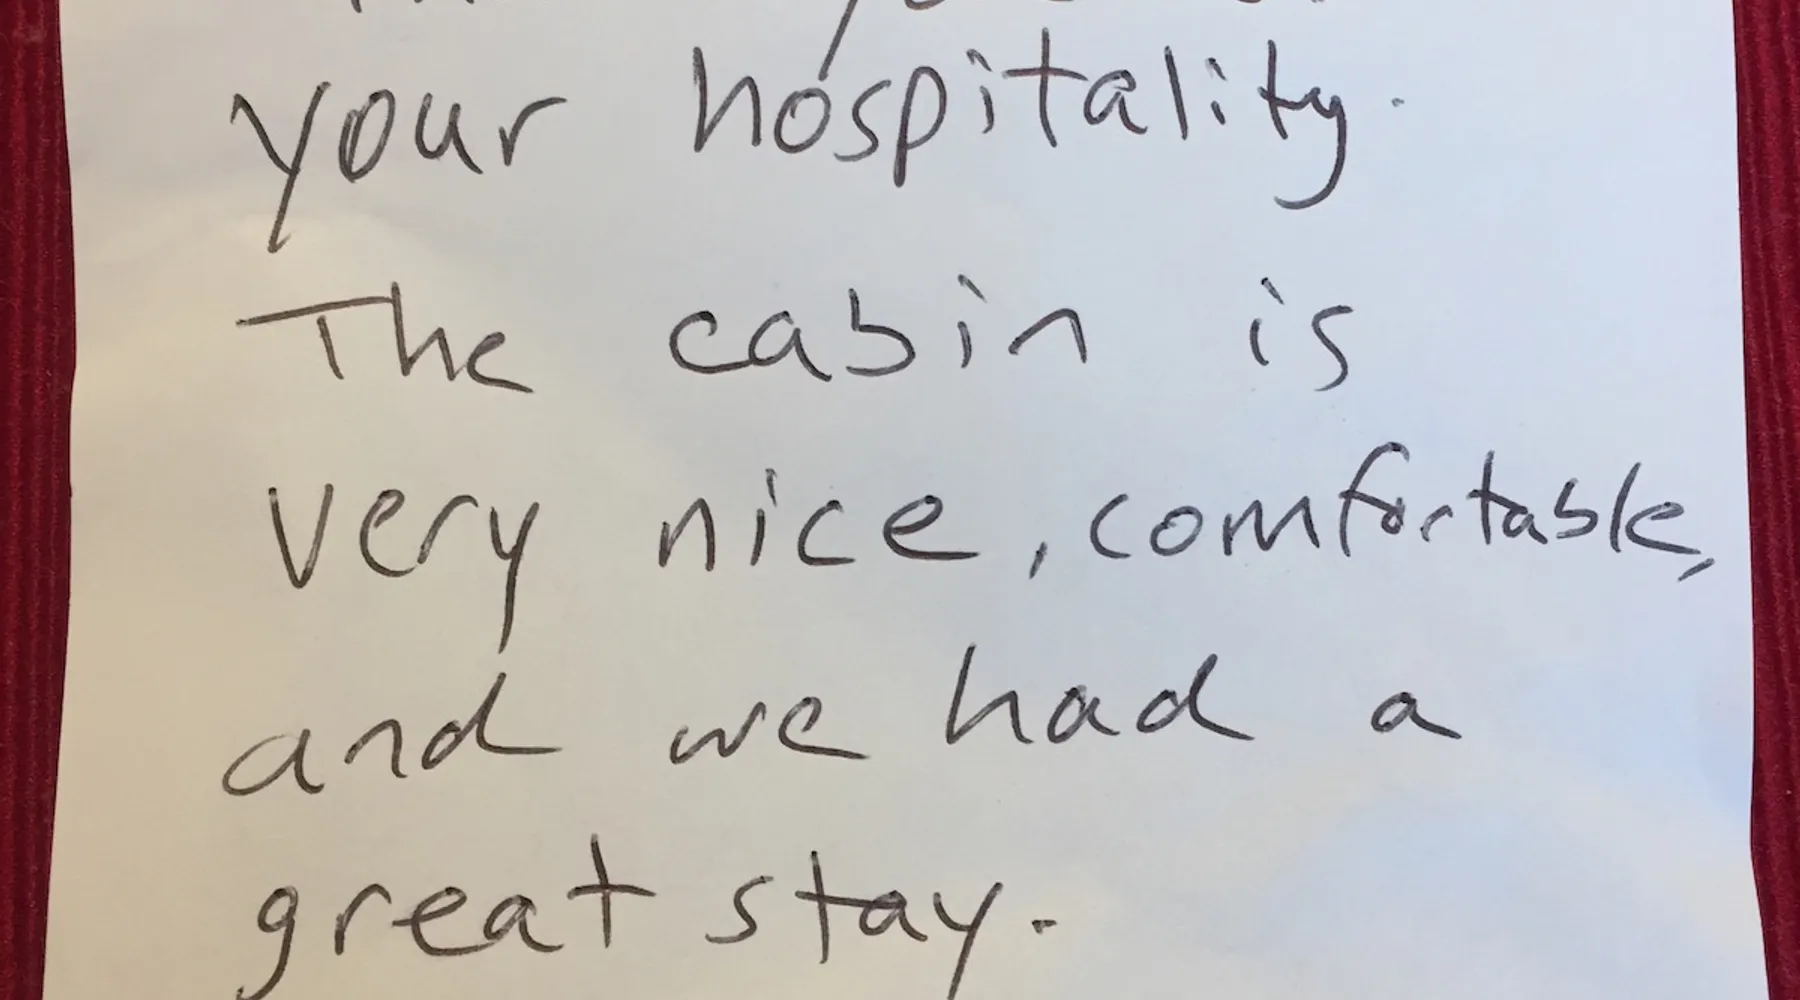 your hospitality.
The cabin is
very nice, comfortable,
and we had a
great stay.